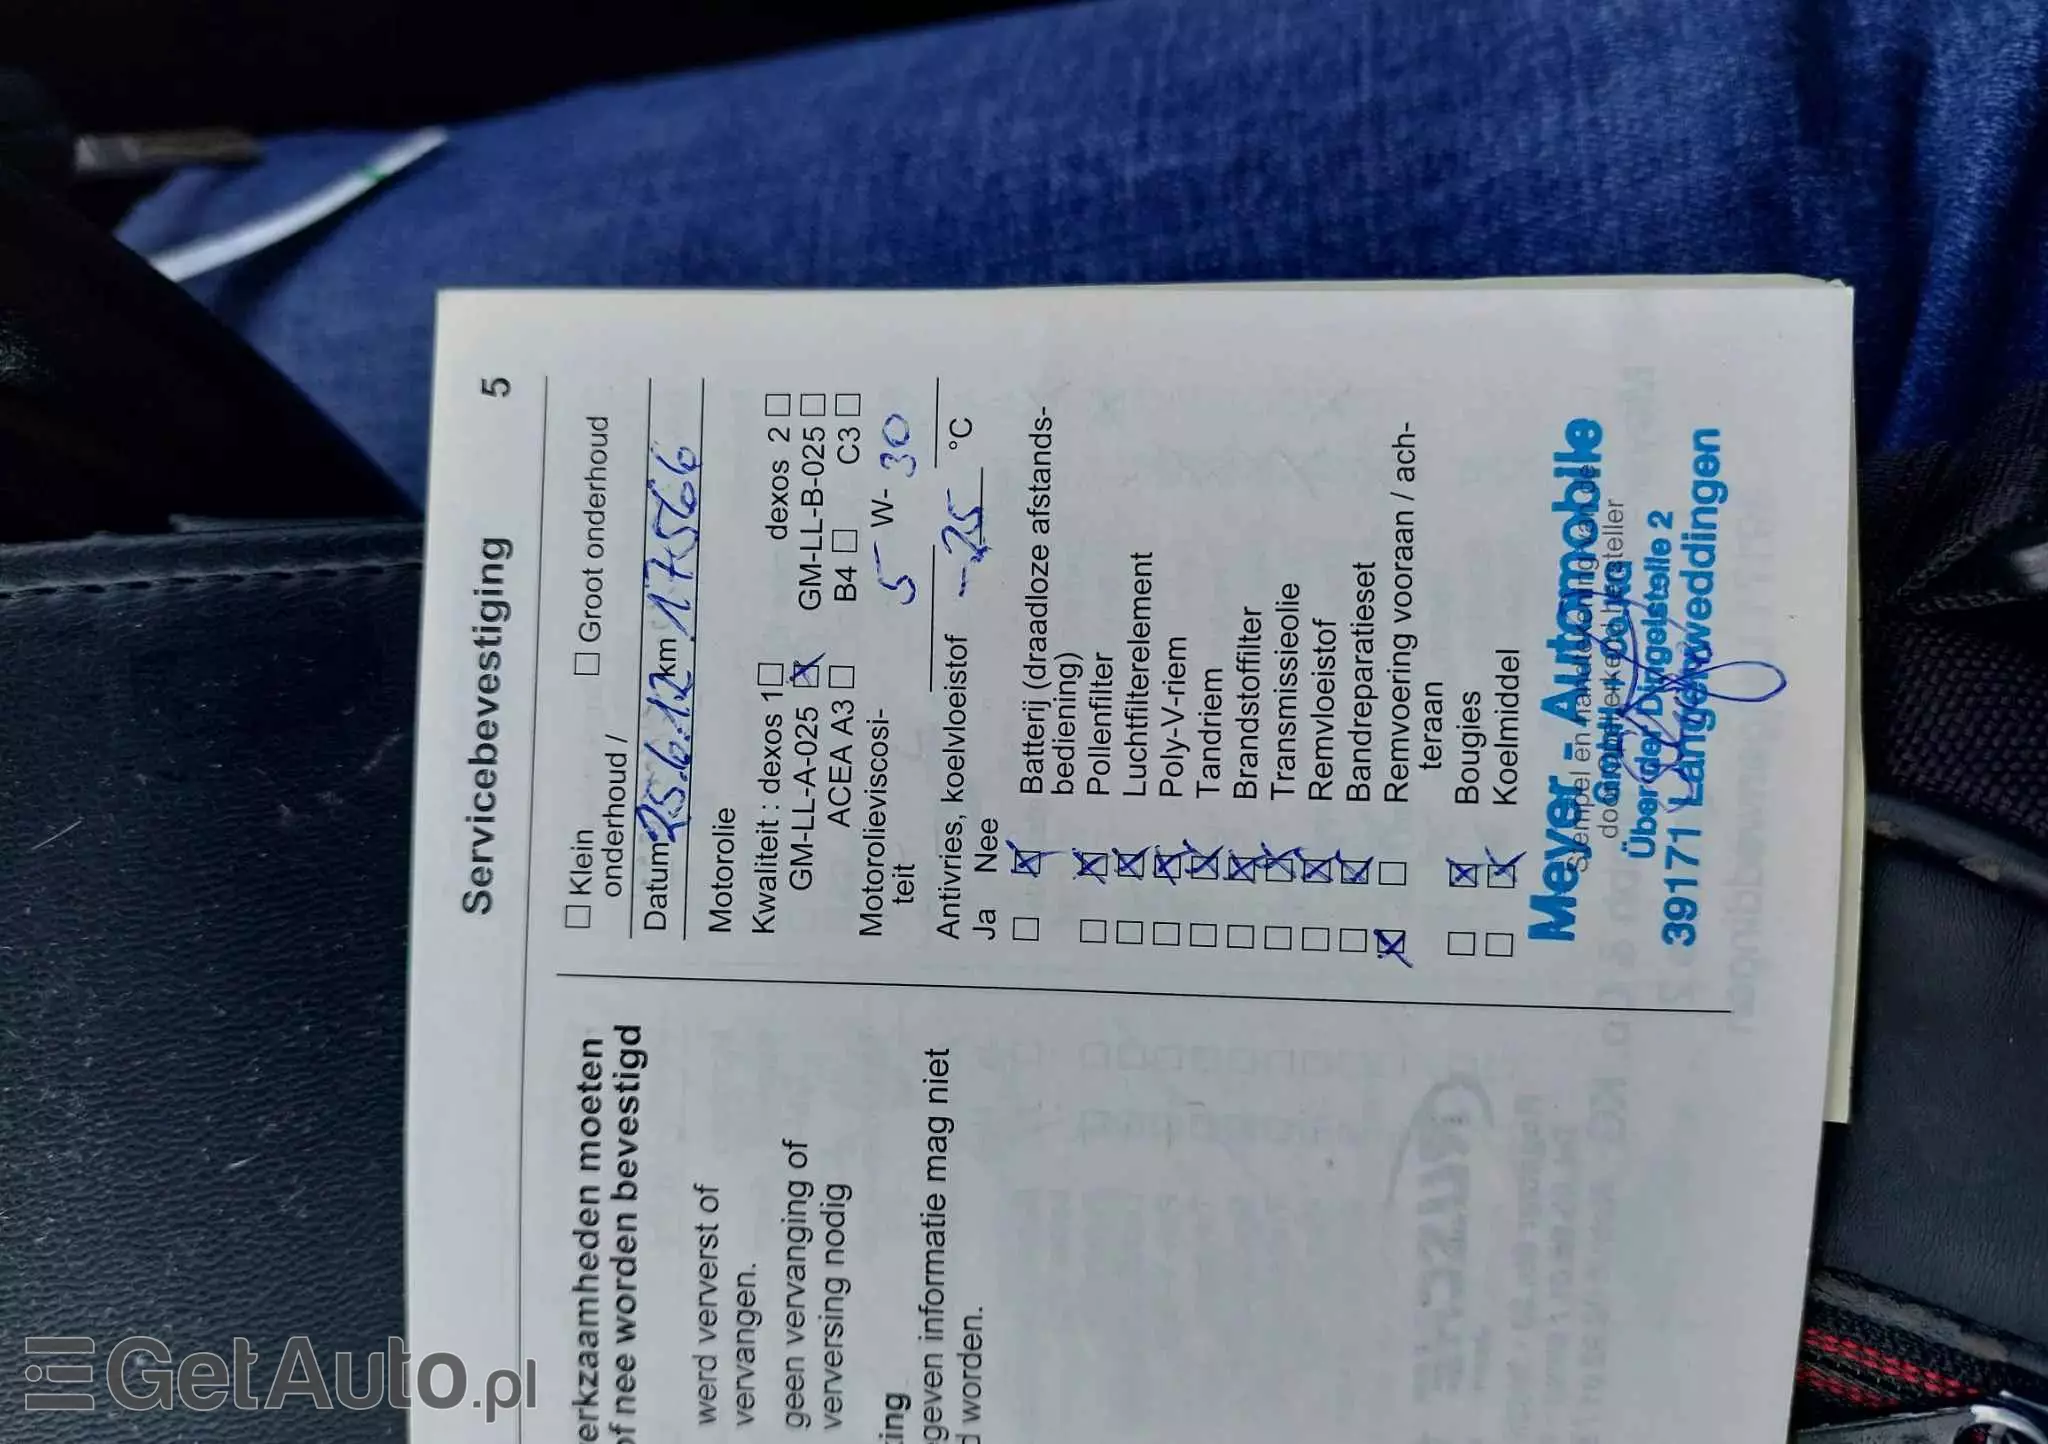 Servicebevestiging 5
erkzaamheden moeten
of nee worden bevestigd
werd ververst of
vervangen.
geen vervanging of
verversing nodig
king
geven informatie mag niet
d worden.
☐ Klein ☐ Groot onderhoud
onderhoud /
Datum 25.6.12 km 17566
Motorolie
Kwaliteit : dexos 1 ☐ dexos 2 ☐
GM-LL-A-025 ☒ GM-LL-B-025 ☐
ACEA A3 ☐ B4 ☐ C3 ☐
Motorolieviscosi-
teit 5 W- 30
Antivries, koelvloeistof -25 °C
Ja Nee
☐ ☒ Batterij (draadloze afstands-
bediening)
☐ ☒ Pollenfilter
☐ ☒ Luchtfilterelement
☐ ☒ Poly-V-riem
☐ ☒ Tandriem
☐ ☒ Brandstoffilter
☐ ☒ Transmissieolie
☐ ☒ Remvloeistof
☐ ☒ Bandreparatieset
☒ ☐ Remvoering vooraan / ach-
teraan
☐ ☒ Bougies
☐ ☒ Koelmiddel
Meyer - Automobile
Über der Dingelstelle 2
39171 Langenweddingen
GetAuto.pl